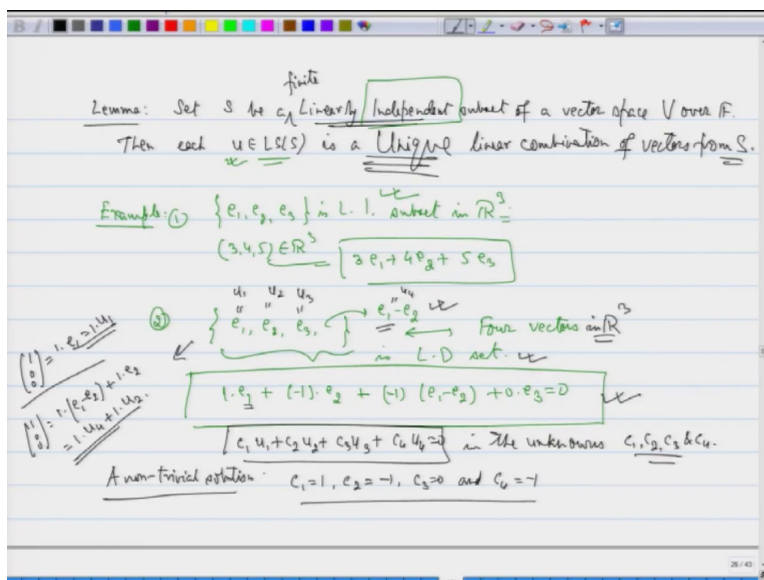 finite
Lemma: Set S be a Linearly Independent subset of a vector space V over F.
Then each u ∈ LS(S) is a Unique linear combination of vectors from S.
Example: ① {e₁, e₂, e₃} is L.I. subset in ℝ³
(3,4,5) ∈ ℝ³ 3e₁ + 4e₂ + 5e₃
u₁ u₂ u₃ u₄
② {e₁, e₂, e₃, } e₁-e₂ ↔ Four vectors in ℝ³
is L.D set.
(1 0 0) = 1·e₁ = 1·u₁
(1 0 0) = 1·(e₁-e₂) + 1·e₂
= 1·u₄ + 1·u₂.
1·e₁ + (-1)·e₂ + (-1) (e₁-e₂) + 0·e₃ = 0
c₁u₁ + c₂u₂ + c₃u₃ + c₄u₄ = 0 in the unknowns c₁, c₂, c₃ & c₄.
A non-trivial solution: c₁ = 1, c₂ = -1, c₃ = 0 and c₄ = -1
26 / 43